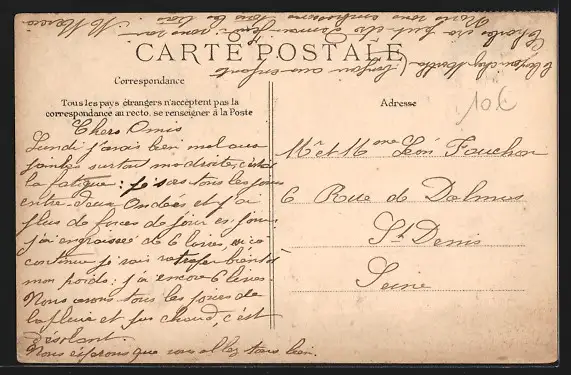 CARTE POSTALE
Correspondance
Tous les pays étrangers n'acceptent pas la
correspondance au recto. se renseigner à la Poste
Adresse
10 €
Chers Amis
Lundi j'avais bien mal aux
jambes surtout ma droite, c'était
la fatigue: je sors tous les jours
entre deux Ondées et j'ai
plus de forces de jour en jour
j'ai engraissé de 6 livres, si ça
continue je vais rattraper bientôt
mon poids: j'ai encore 6 livres.
Nous avons tous les jours de
la pluie et pas chaud, c'est
désolant.
Nous espérons que vous allez tous bien.
Charles ira Dimanche vous voir
Nous vous embrassons tous les trois
Mr et Mme Léon Fouchon
6 Rue de Dalmus
St Denis
Seine